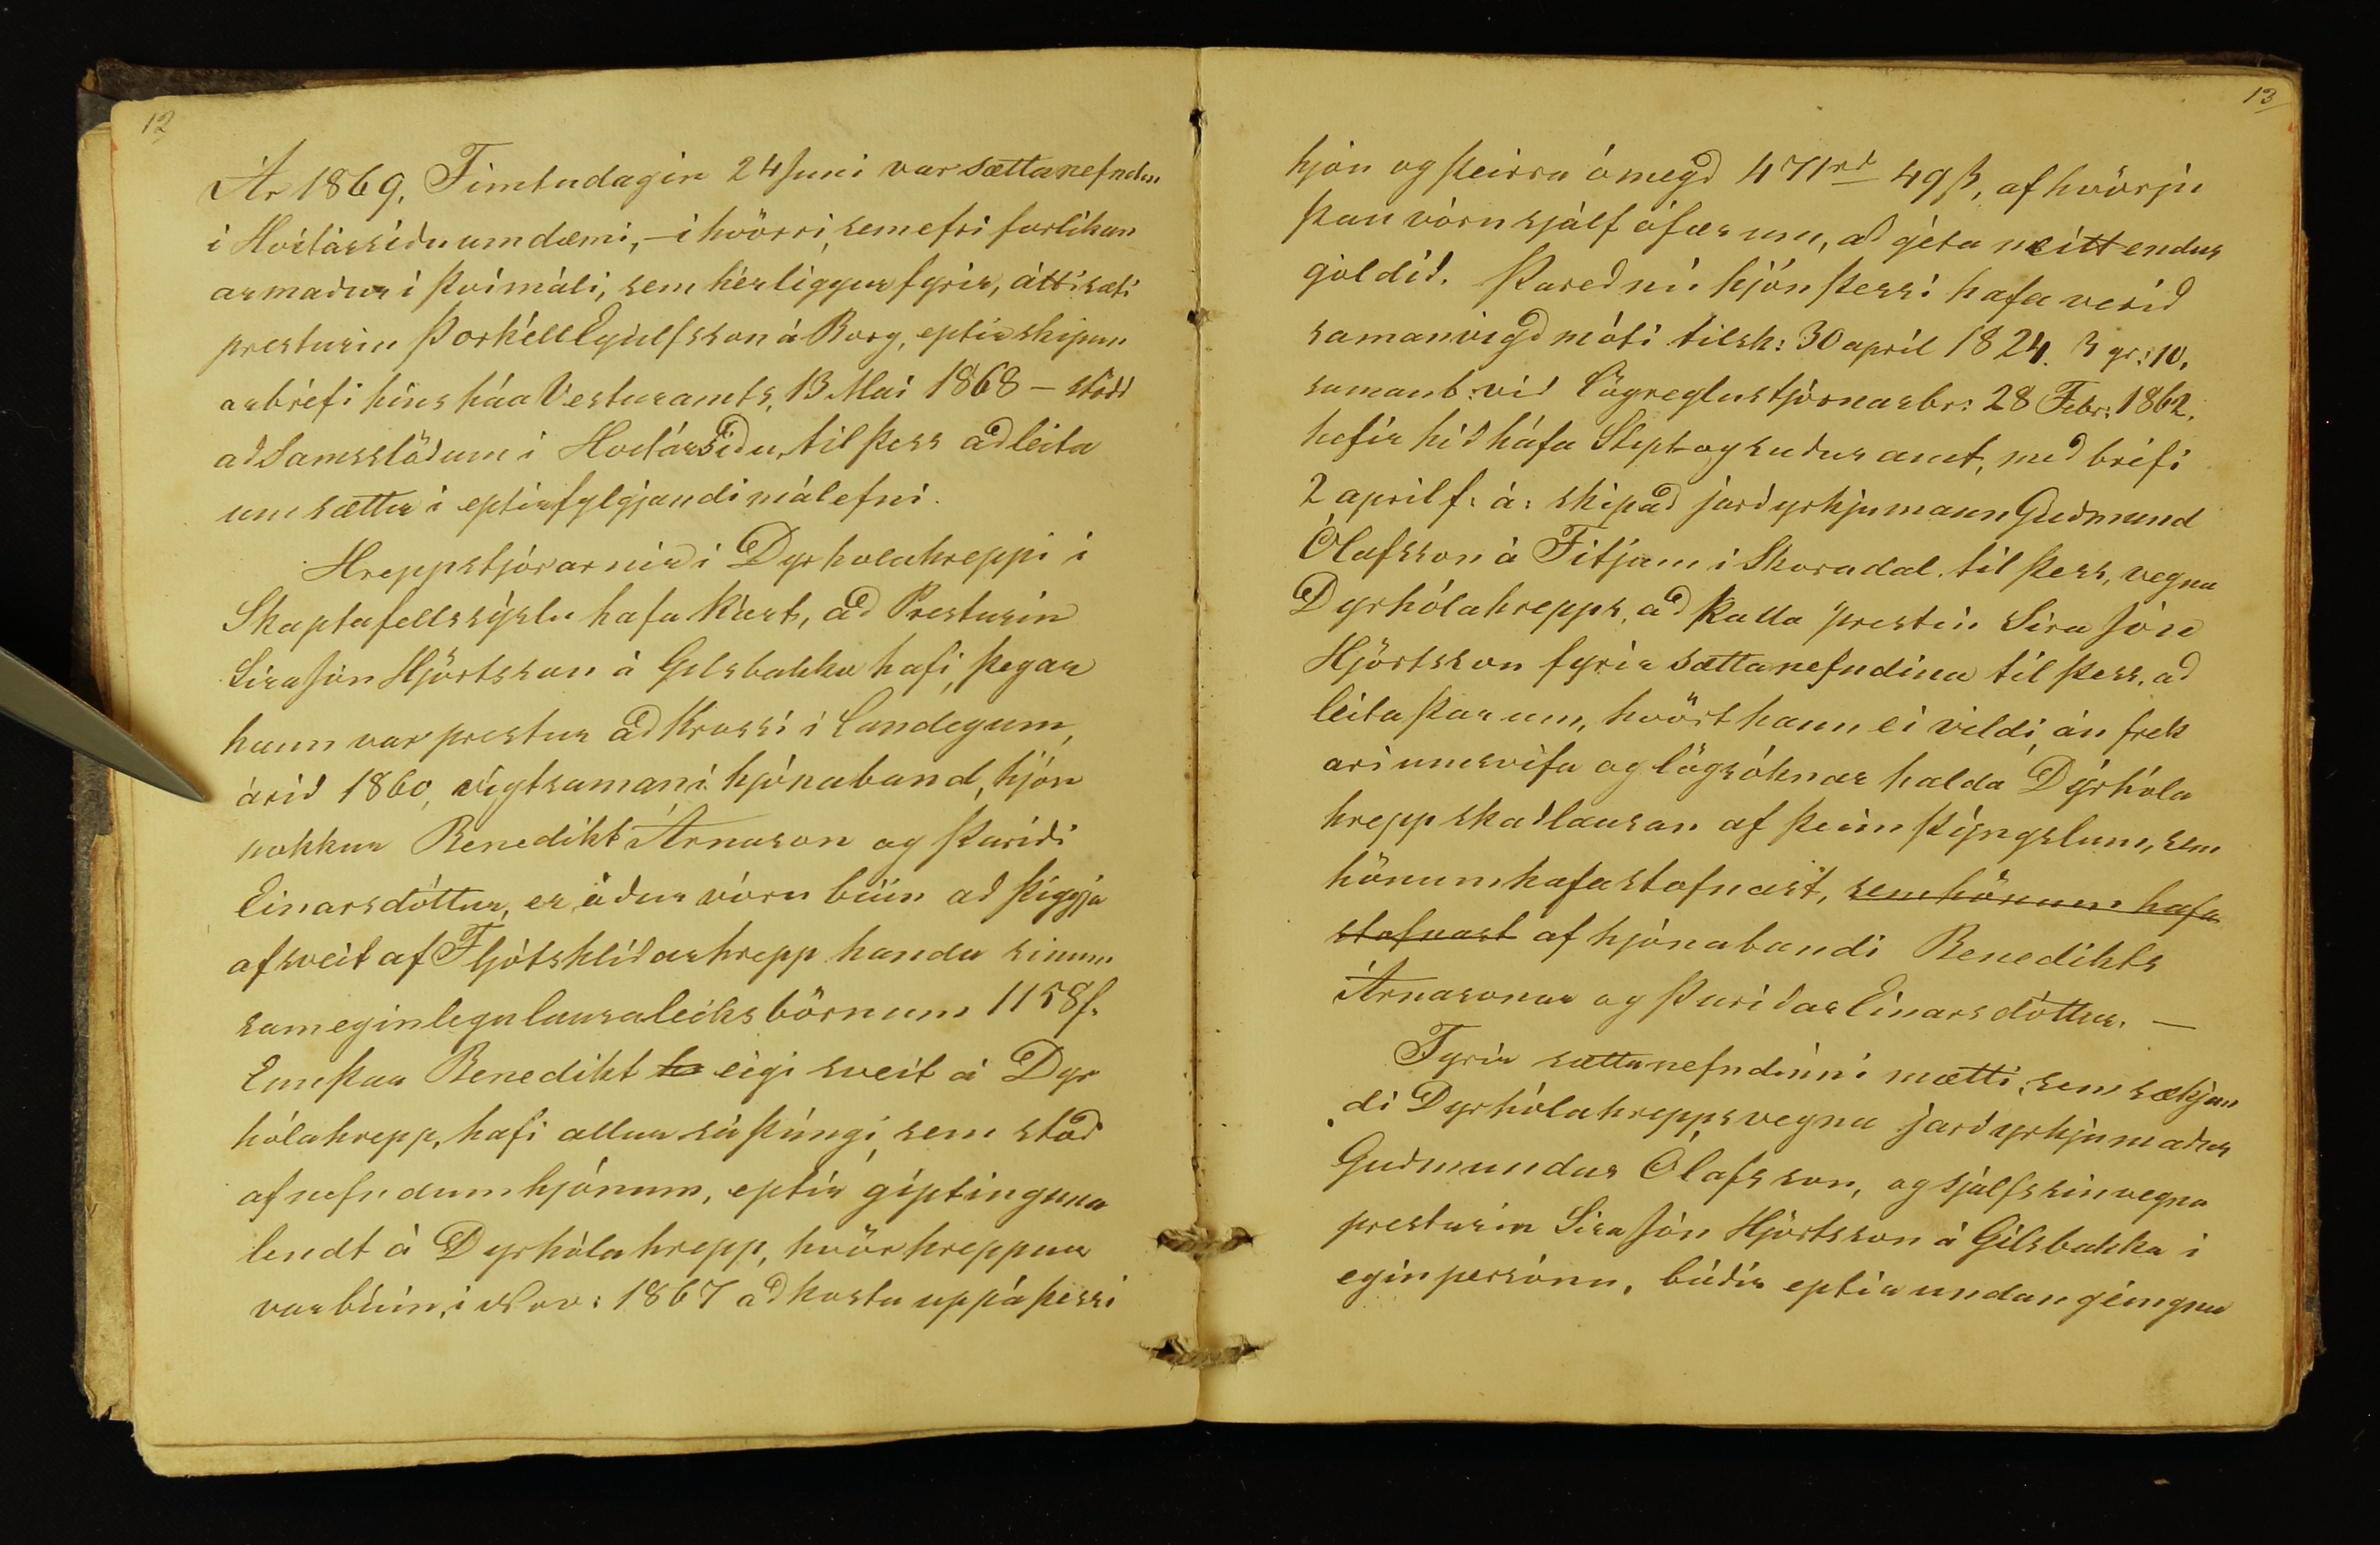 12
Ár 1869, Fimtudagin 24 Juni var sættanefndin
i Hvítársíðuumdæmi, – i hvörri, sem efri forlíkun
armaður í því máli, sem hér liggur fyrir, átti sæti
presturin Þorkéll Eyúlfsson á Borg, eptir skipun
arbréfi hins háa Vesturamts, 13 Mai 1868 – stödd
að Samsstöðum í Hvítársíðu, til þess að leita
um sættir i eptirfylgjandi málefni.
Hreppstjórarnir í Dyrholahreppi i
Skaptafellssýslu hafa kært, að Presturin
Sira Jón Hjörtsson á Gilsbakka hafi, þegar
hann var prestur að Krossi i Landeyum,
árið 1860, vígt saman í hjónaband, hjón
nokkur Benedikt Árnason og Þuríði
Einarsdóttur, er áður vóru búin að þiggja
af sveit af Fljótshlíðarhrepp handa sinum
sameginlegu lausaleiksbörnum 1158 f.
Enn þar Benedikt eigi sveit á Dyr
hólahrepp, hafi allur sú þúngi, sem stóð
af nefndum hjónum, eptir giptinguna
lendt á Dyrhólahrepp, hvör hreppur
var búin, i Nov: 1867 að kosta uppá þessi
13
hjón og þeirra ómegð 471 rd 49 ß, af hvörju
þau vóru sjálf ófær um, að géta neitt endur
goldið. Þareð nú hjón þessi hafa verið
samanvígð móti tilsk: 30 apríl 1824. 3 gr: 10,
samanb: við Lögreglustjórnarbr: 28 Febr: 1862,
hefir hið háfa Stipt og suður amt, með bréfi
2 april f: á: skipað jarðyrkjumann Guðmund
Ólafsson á Fitjum i Skoradal til þess, vegna
Dyrhólahrepps, að kalla prestin Sira Jón
Hjörtsson fyrir sættanefndina til þess, að
leita þar um, hvört hann ei vildi, án frek
ari umsvifa og lögsóknar halda Dýrhóla
hrepp skaðlausan af þeim þýngslum, sem
hönum hafa stafnast, sem hönum hafa
stafnast af hjónabandi Benedikts
Árnasonar og Þuriðar Einarsdóttur. –
Fyrir sættanefndinni mætti, sem sækjan
di Dyrhólahrepps vegna jarðyrkjumaður
Guðmundur Ólafsson, og sjálfs sin vegna
presturin Sira Jón Hjörtsson á Gilsbakka i
egin persónu, búðir eptir undangéingnu